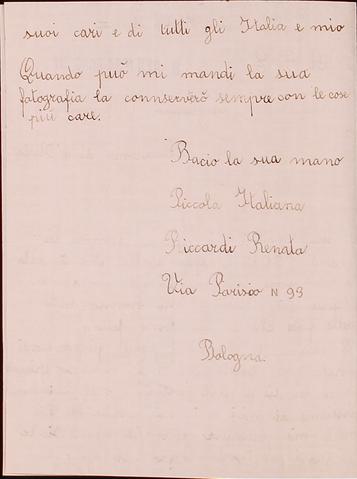 suoi cari e di tutti gli Italia e mio
Quando può mi mandi la sua
fatografia la connserverò sempre con le cose
più care.
Bacio la sua mano
Piccola Italiana
Riccardi Renata
Via Parisio N 93
Bologna.